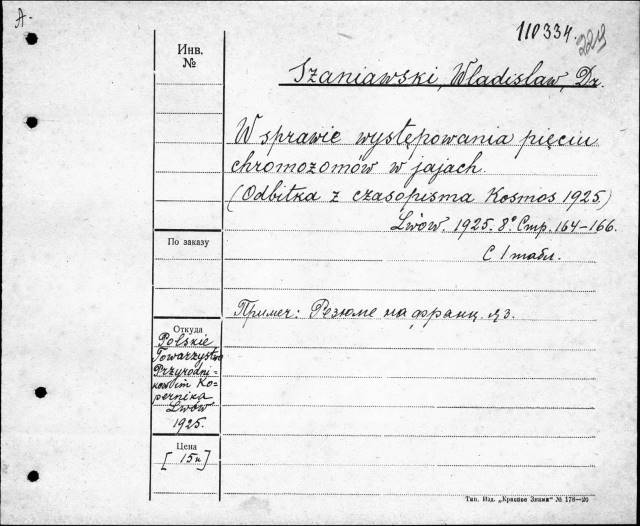 A.
110334.
229
Инв.
№
Szaniawski, Wladislaw, Dr.
W sprawie występowania pięciu
chromozomów w jajach.
(Odbitka z czasopisma Kosmos 1925.)
Lwów. 1925. 8° Стр. 164-166.
С 1 табл.
По заказу
Примеч: Резюме на франц. яз.
Откуда
Polskie
Towarzystwo
Przyrodni-
ków im Ko-
pernika
Lwów
1925.
Цена
[15к]
Тип. Изд. „Красное Знамя" № 178—26